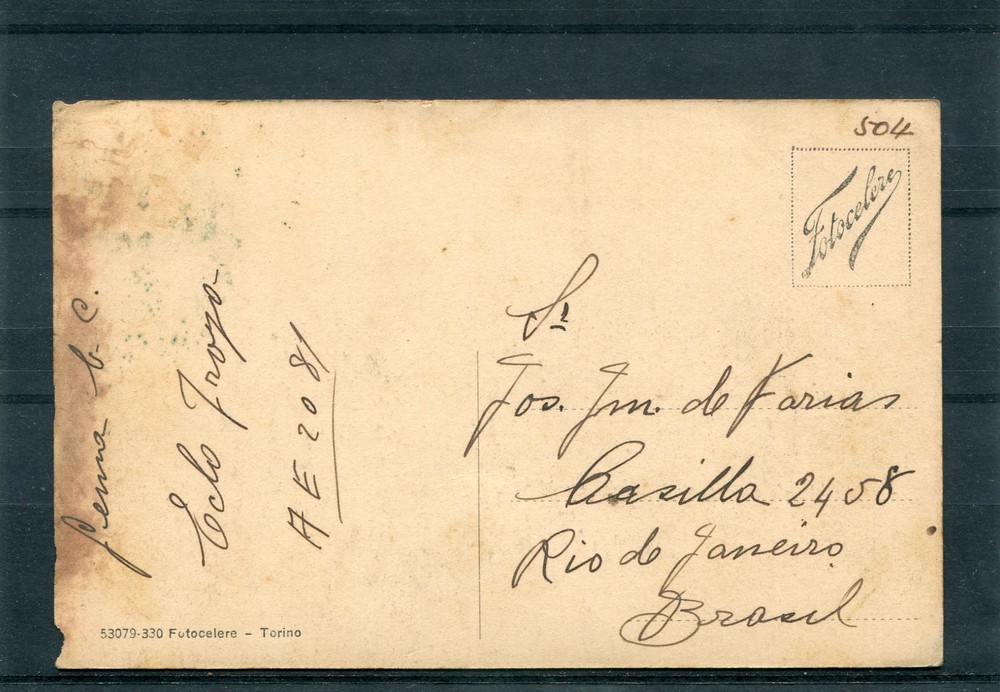 504
Fotocelere
Sr
Jos. Jm. de Farias
Casilla 2458
Rio de Janeiro
Brasil
b. c.
Eclo
A E 2081
53079-330 Fotocelere - Torino